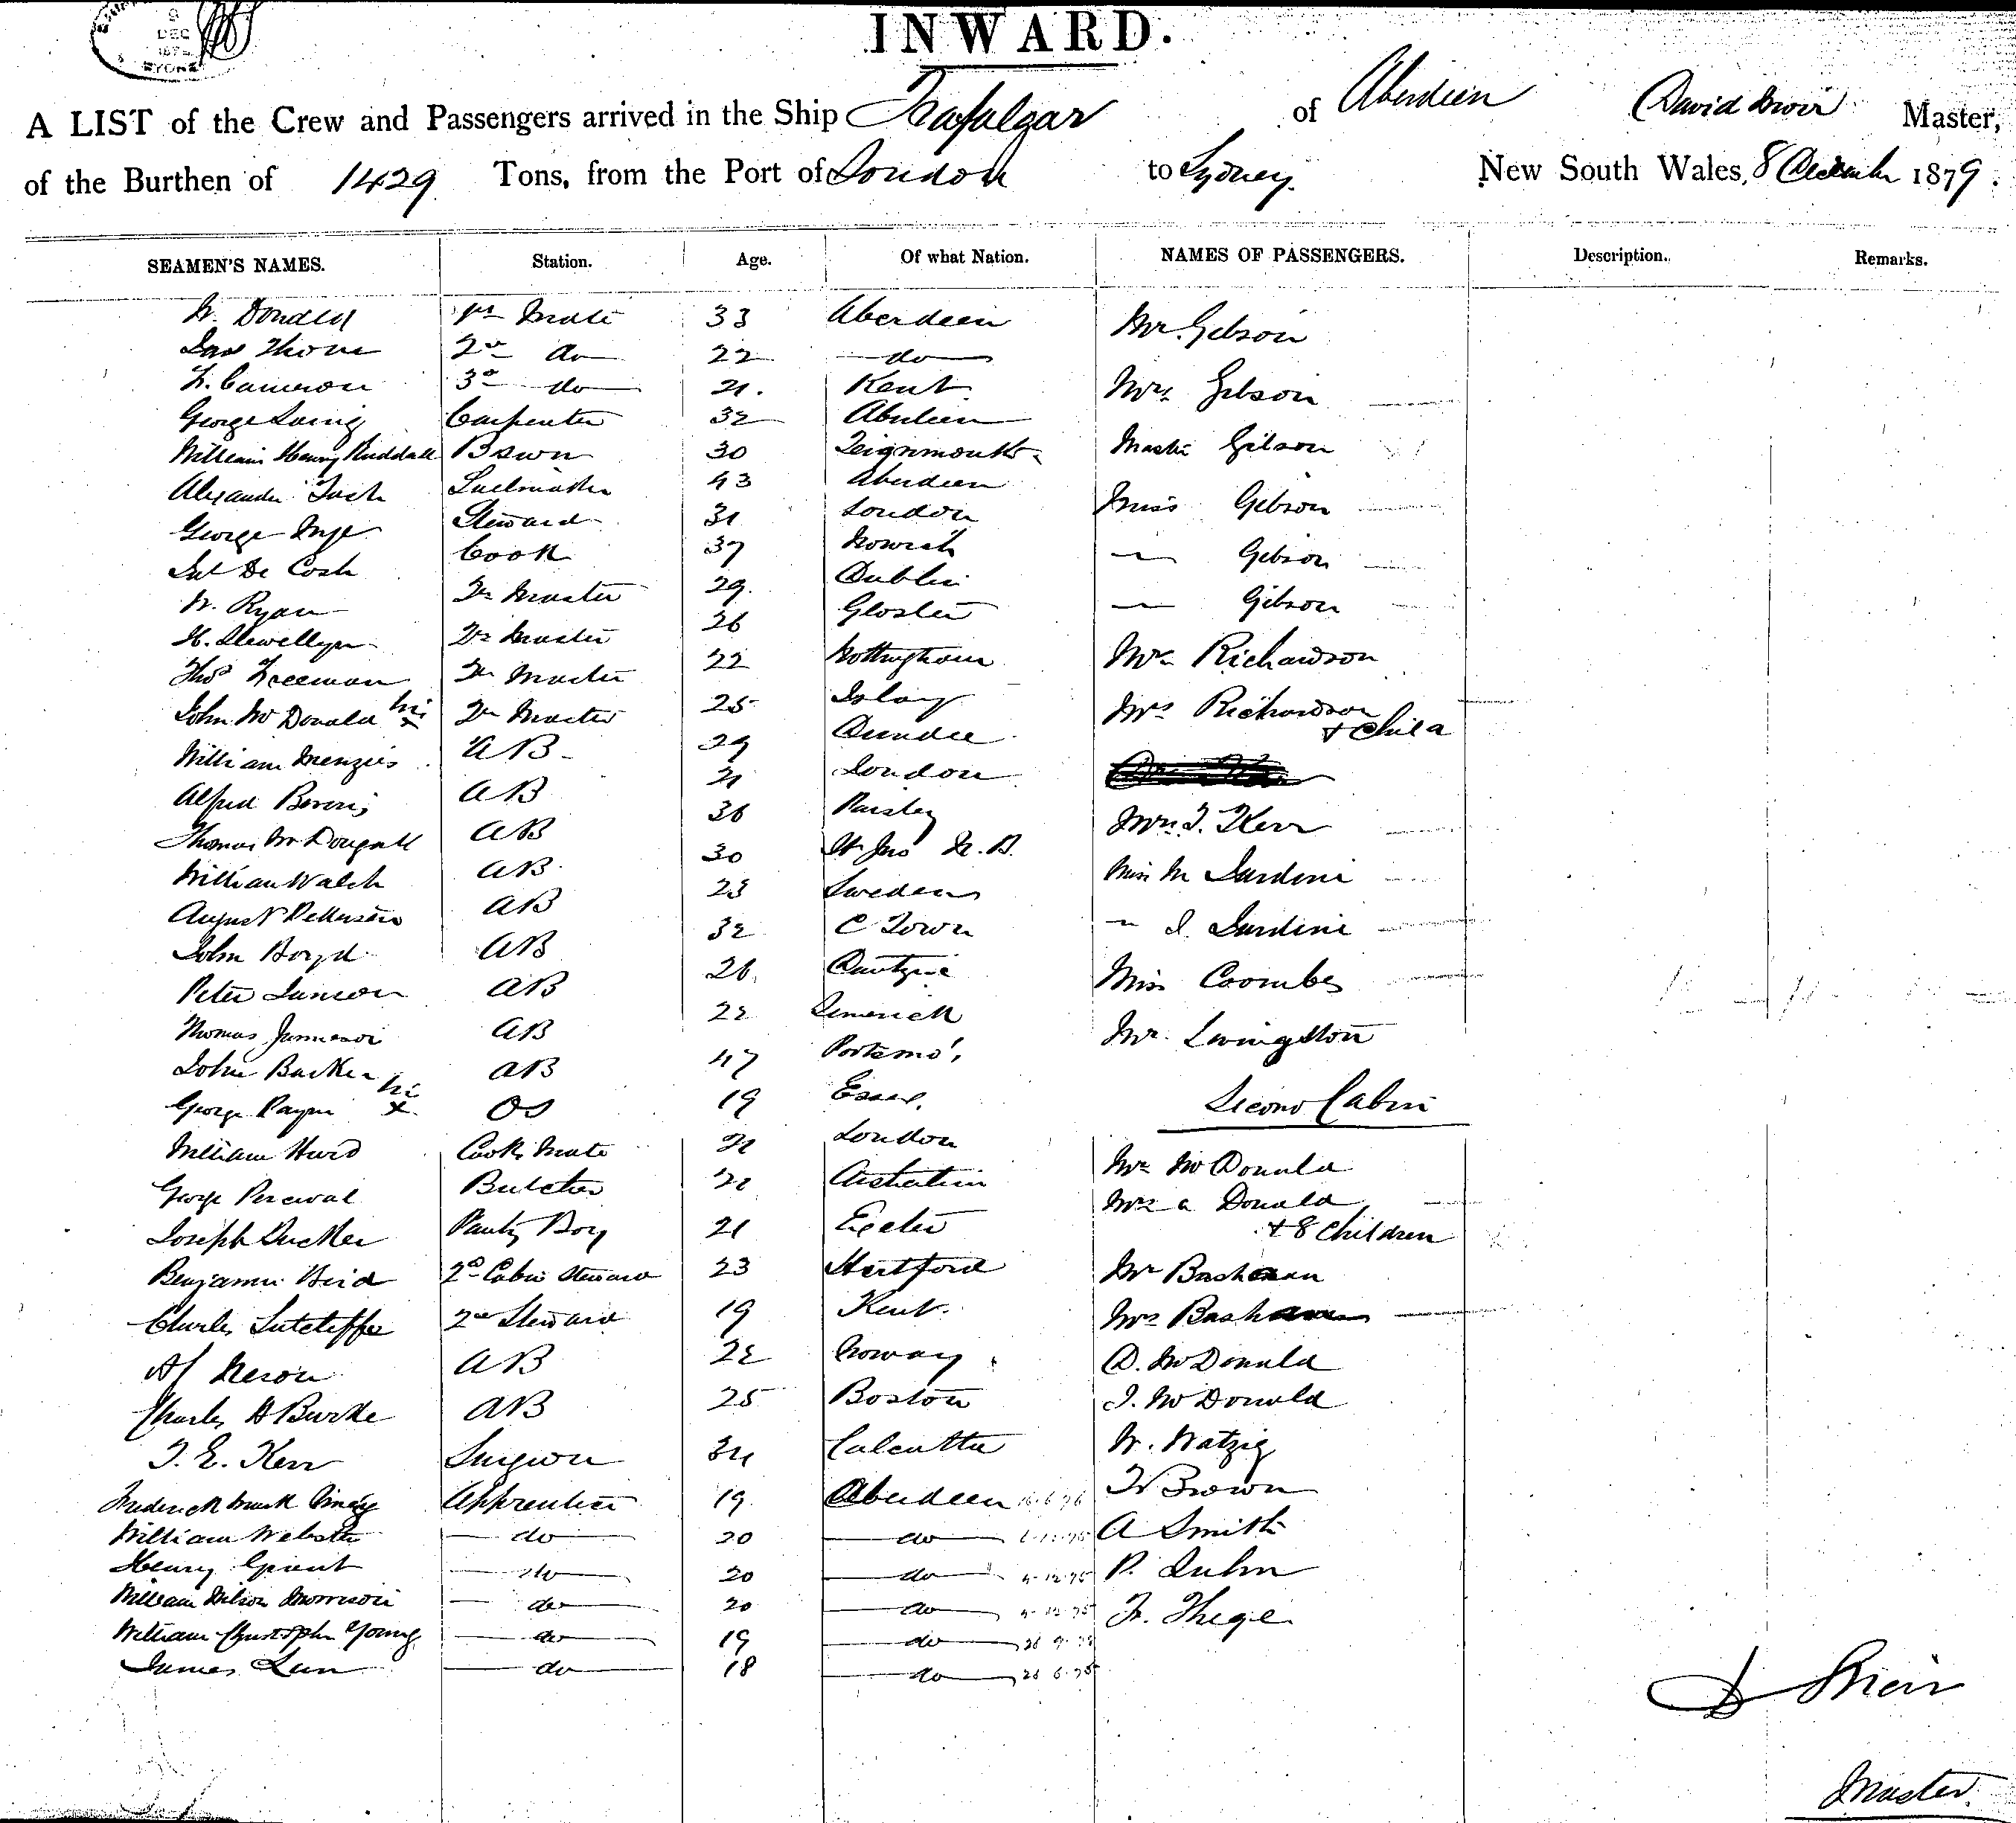 DEC
SYDNEY
INWARD.
A LIST of the Crew and Passengers arrived in the Ship Trafalgar of Aberdeen David Muir Master,
of the Burthen of 1429 Tons, from the Port of London to Sydney. New South Wales, 8 December 1879.
SEAMEN'S NAMES. Station. Age. Of what Nation. NAMES OF PASSENGERS. Description. Remarks.
W. Donald 1st Mate 33 Aberdeen Mr. Gibson
Thom 2nd do 22 do
Cameron 3rd do 21. Kent Mrs Gibson
George Laing Carpenter 32 Aberdeen
William Henry Ruddall Bswn 30 Teignmouth Master Gibson
Alexander Sailmaker 43 Aberdeen
George Inge Steward 31 London Miss Gibson
De Cosh Cook 37 Norwich — Gibson
W. Ryan Qr Master 29. Dublin — Gibson
H. Llewellyn Qr Master 26 Gloster
Thos Freeman Qr Master 22 Nottingham Mr Richardson
John McDonald his x Qr Master 25 Islay Mrs Richardson
& Child
William Menzies AB 29 Dundee
Alfred AB 21 London
Thomas McDougall AB 36 Paisley Mrs. T. Kerr
William Walsh AB 30 St Jno N.B. Miss M Jardine
August Petterson AB 23 Sweden
John Boyd AB 32 C Town — J. Jardine
Peter AB 26 Dantzic Miss Coombes
Thomas AB 22 Limerick Mr. Livingston
John Barker AB 47 Portsmo',
George Payne his x OS 19 Essex. Second Cabin
William Hurd Cooks Mate 21 London Mr McDonald
George Percival Butcher 22 Mrs Donald
& 8 Children
Joseph Tucker Pantry Boy 21 Exeter
Benjamin Bird 2nd Cabin Steward 23 Hertford Mr
Charles Sutcliffe 2nd Steward 19 Kent. Mrs
AB 22 Norway D. McDonald
Charles A Burke AB 25 Boston J. McDonald
T. E. Kerr Surgeon 34 Calcutta W. Watzig
Frederick Apprentice 19 Aberdeen Brown
William Webster do 20 do A Smith
Henry Grant do 20 do 4.12.75 P. Kuhn
William Wilson Morrison do 20 do Thege
William Christopher Young do 19 do
James do 18 do 26.6.75
D Muir
Master.